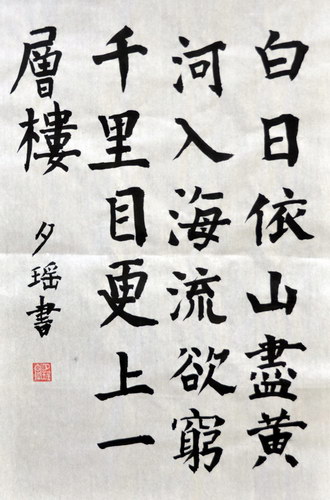 白日依山盡黄
河入海流欲窮
千里目更上一
層樓
夕瑶書